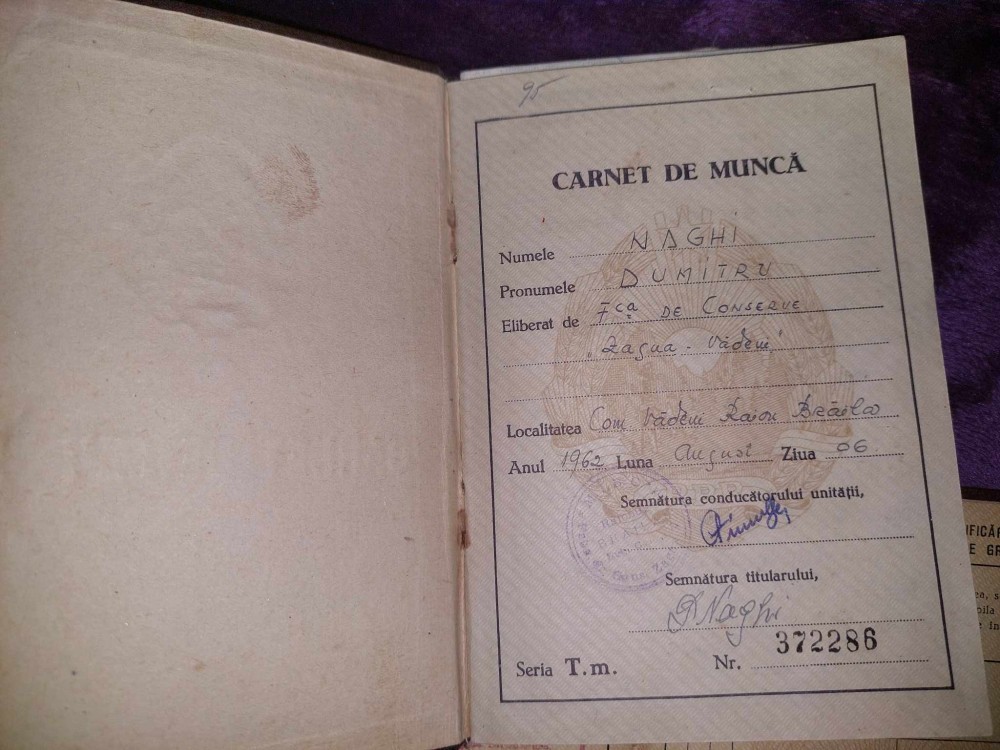 95
CARNET DE MUNCĂ
Numele NAGHI
Pronumele DUMITRU
Eliberat de Fca DE CONSERVE
"Zagna - Vădeni"
Localitatea Com Vădeni Raion Brăila
Anul 1962 Luna August Ziua 06
Semnătura conducătorului unității,
Semnătura titularului,
D Naghi
Seria T.m. Nr. 372286